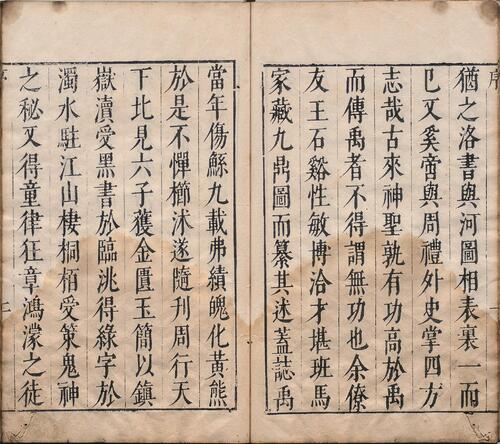 序
猶之洛書與河圖相表裏一而
已又奚啻與周禮外史掌四方
志哉古來神聖孰有功高於禹
而傳禹者不得謂無功也余僚
友王石谿性敏博洽才堪班馬
家藏九鼎圖而纂其述蓋誌禹
當年傷鯀九載弗績魄化黃熊
於是不憚櫛沐遂隨刊周行天
下比見六子獲金匱玉簡以鎮
嶽瀆受黑書於臨洮得綠字於
濁水駐江山棲桐栢受策鬼神
之秘又得童律狂章鴻濛之徒